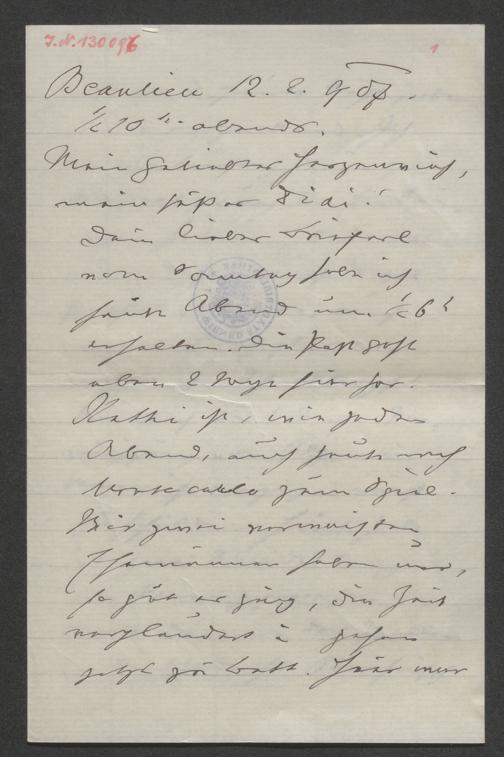 J.N. 130096
1
Beaulieu 12. 2. 9
½ 10 h. abends.
Mein geliebter Herzensious,
mein süßer Didi!
Dein lieber Brieferl
vom Sonntag habe ich
heute Abend um ½ 6 h
erhalten. Die Post geht
eben 2 Tage hierher.
Kathi ist, wie jeden
Abend, auch heute nach
Monte Carlo zum Spiel.
Wir zwei verwaisten
Ehemänner haben uns,
so gut es ging, die Zeit
verplaudert u gehen
jetzt zu Bett. Hier nur